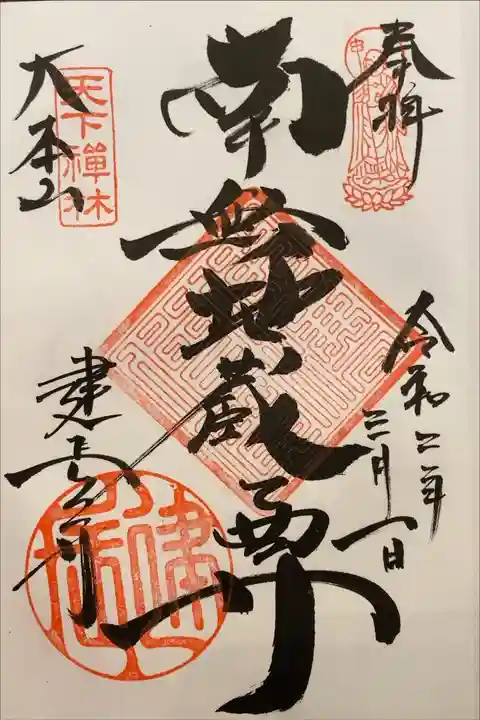 奉拝
令和二年
三月一日
南無地蔵尊
天下禅林
大本山
建長寺